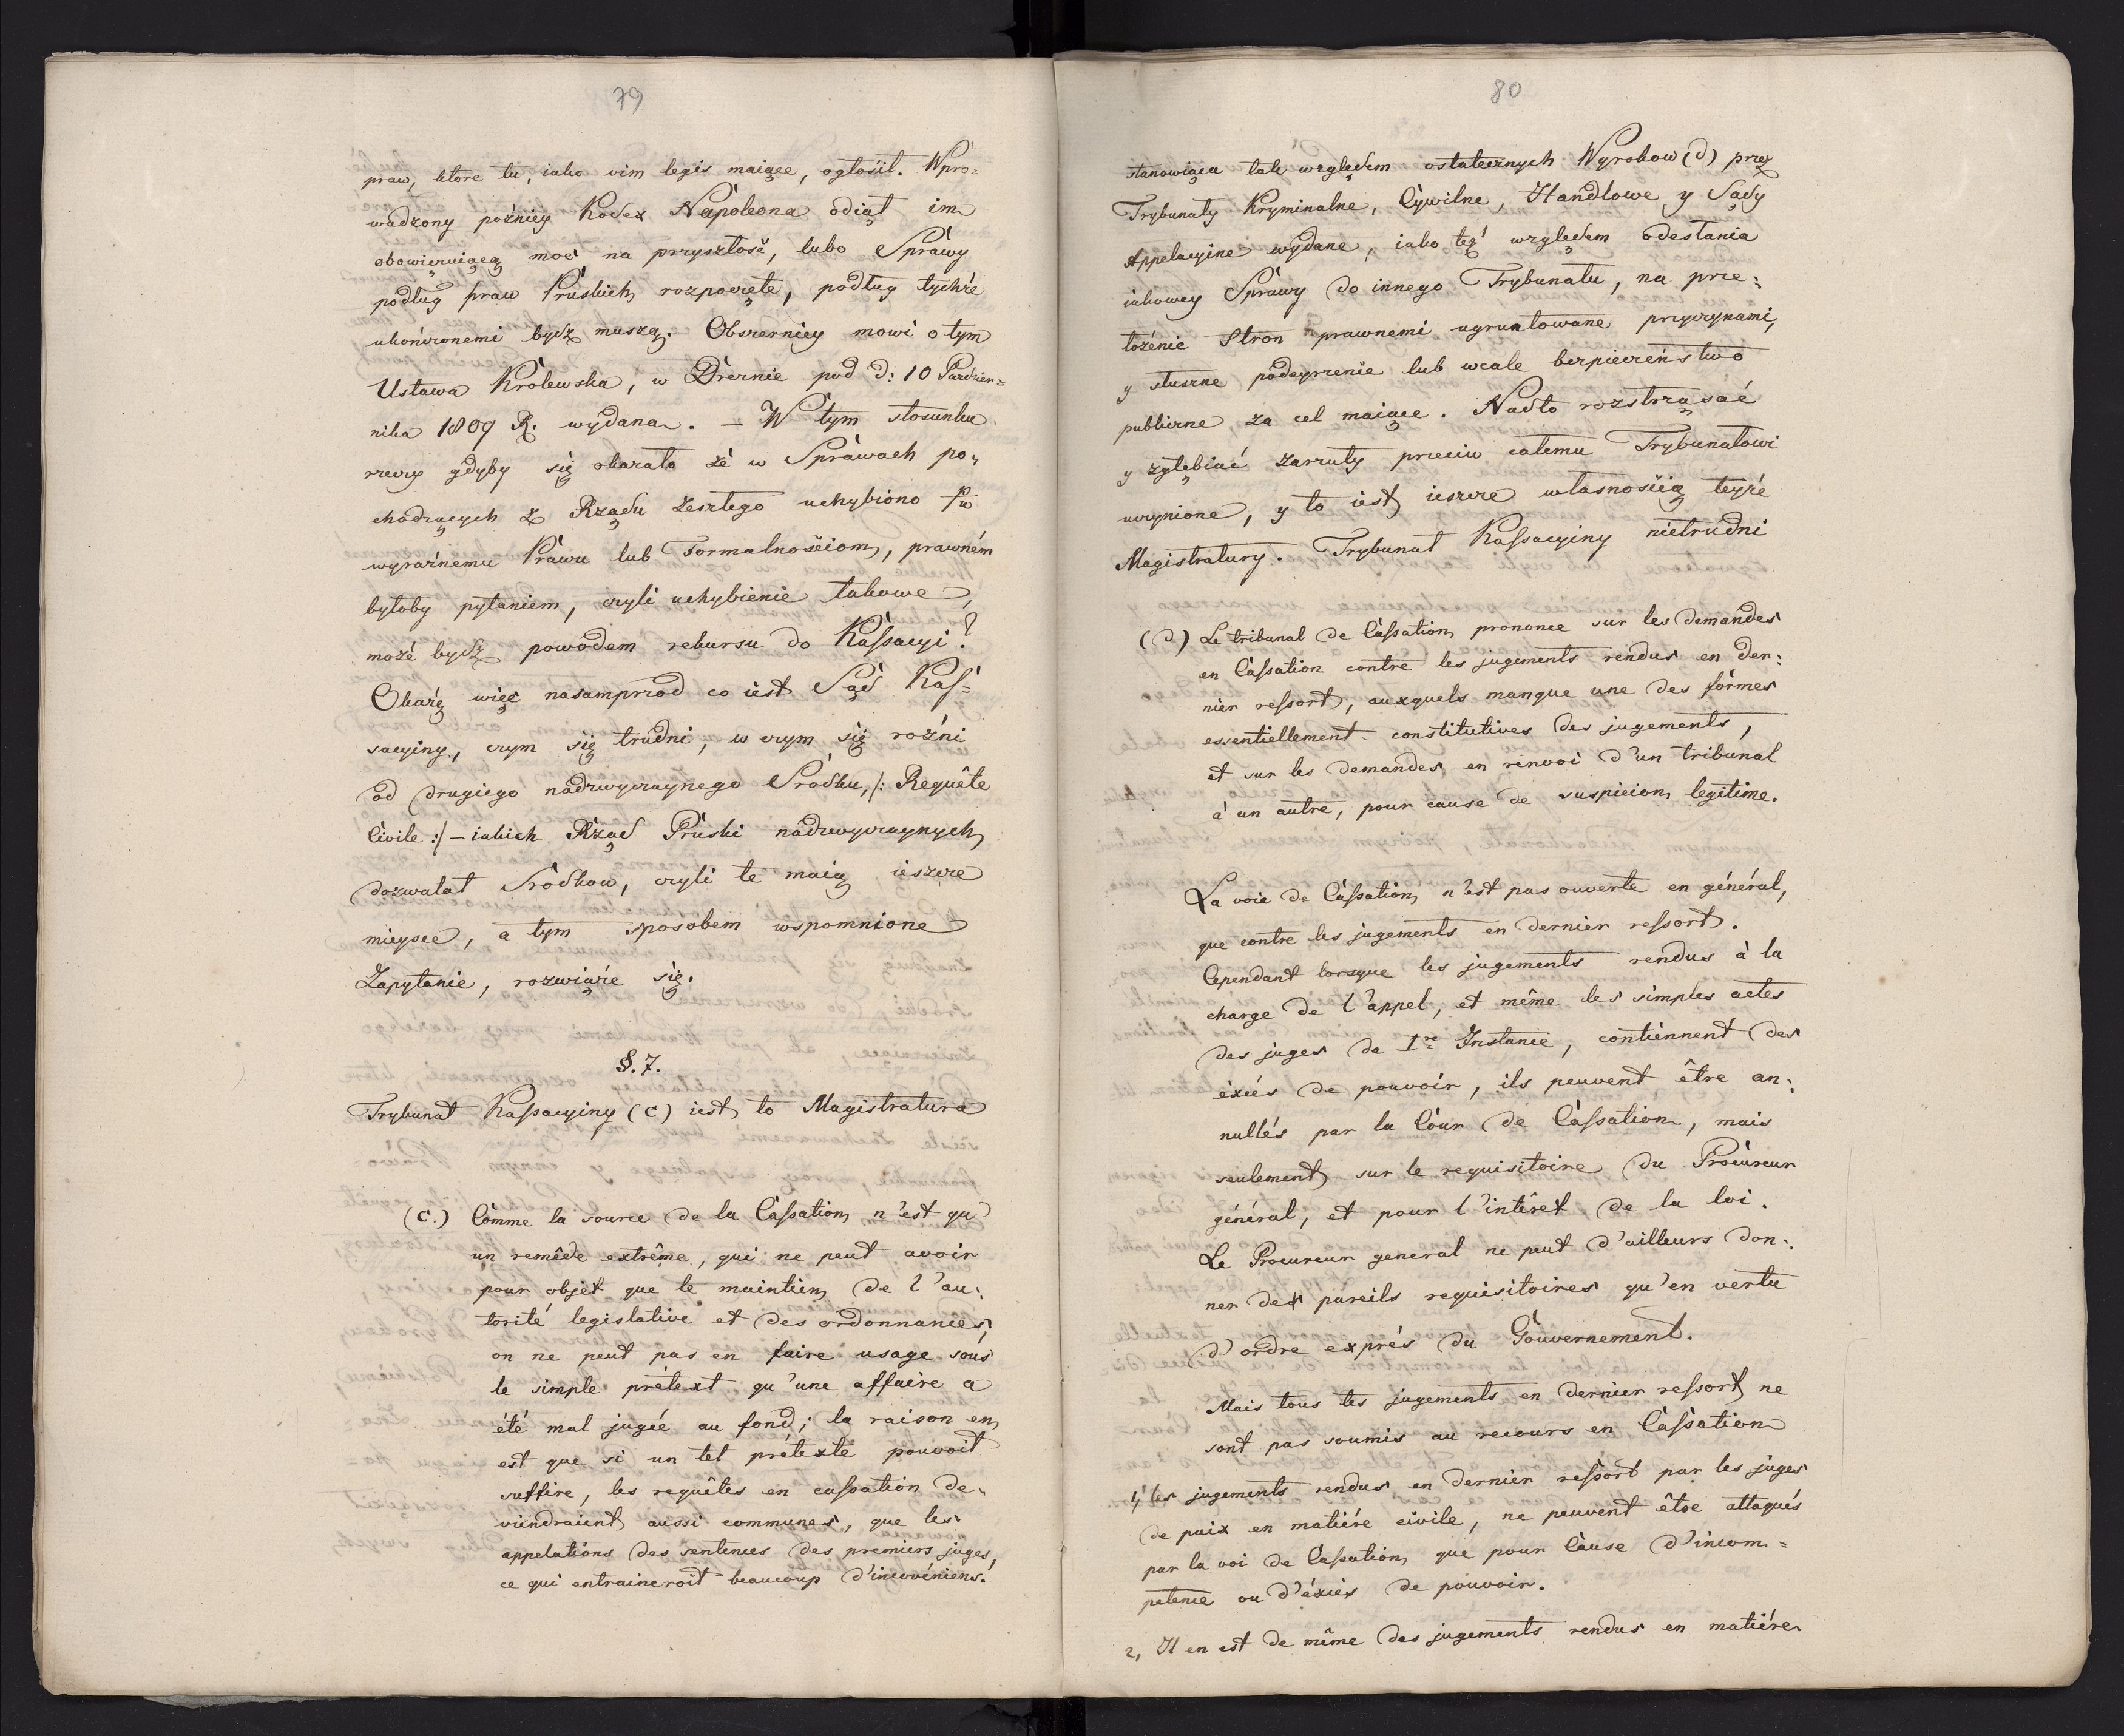 79
praw, ktore tu, iako vim legis maiące, ogłosił. Wpro=
wadzony poźniey Kodex Napoleona odiął im
obowięzuiącą moć na przyszłość, lubo Sprawy
podług praw Pruskich rozpoczęte, podług tychże
ukończonemi bydź muszą. Obszerniey mowi o tym
Ustawa Krolewska, w Dreznie pod d: 10 Paździer=
nika 1809 R. wydana. – W tym stosunku
rzeczy gdyby się okazało że w Sprawach po=
chodzących z Rządu zeszłego uchybiono
wyraźnemu Prawu lub Formalnościom, prawném
byłoby pytaniem, czyli uchybienie takowe
może bydź powodem rekursu do Kaſsacyi?
Okażę więc nasamprzod co iest Sąd Kaſ=
sacyiny, czym się trudni, w czym się rożni
od drugiego nadzwyczaynego Srodku, /: Requête
Civile :/ – iakich Rząd Pruski nadzwyczaynych
dozwalał Srodkow, czyli te maią ieszcze
mieysce, a tym sposobem wspomnione
Zapytanie, rozwiąże się.
§. 7.
Trybunał Kaſsacyiny (c) iest to Magistratura
(c.) Comme la source de la Caſsation n'est qu'
un reméde extrême, qui ne peut avoir
pour objet que le maintien de l'au=
torité legislative et des ordonnances,
on ne peut pas en faire usage sous
le simple prétext qu'une affaire a
été mal jugée au fond; la raison en
est que si un tel prétexte pouvoit
suffire, les requêtes en caſsation de=
viendraient aussi communes, que les
appelations des sentences des premiers juges,
ce qui entraineroit beaucoup d'incovéniens.
80
stanowiąca tak względem ostatecznych Wyrokow (d) przez
Trybunały Kryminalne, Cywilne, Handlowe y Sądy
Appelacyine wydane, iako też względem odesłania
iakowey Sprawy do innego Trybunału, na prze=
łożenie Stron prawnemi ugruntowane przyczynami,
y słuszne podeyrzenie lub wcale bezpieczeństwo
publiczne za cel maiące. Nadto rozstrząsać
y zgłębiać zarzuty przeciw całemu Trybunałowi
uczynione, y to iest ieszcze własnością teyże
Magistratury. Trybunał Kaſsacyiny nietrudni
(d) Le tribunal de Caſsation prononce sur les demandes
en Caſsation contre les jugements rendus en der=
nier reſsort, auxquels manque une des formes
essentiellement constitutives des jugements,
et sur les demandes en rinvoi d'un tribunal
à un autre, pour cause de suspicion legitime.
La voie de Caſsation n'est pas ouverte en général,
que contre les jugements en dernier reſsort.
Cependant lorsque les jugements rendus à la
charge de l'appel, et même les simples actes
des juges de 1re Instance, contiennent des
éxcés de pouvoir, ils peuvent être an=
nullés par la Cour de Caſsation, mais
seulement sur le requisitoire du Procureur
général, et pour l'intêret de la loi.
Le Procureur general ne peut d'ailleurs don=
ner des pareils requisitoires qu'en vertu
d'ordre exprés du Gouvernement.
Mais tous les jugements en dernier reſsort ne
sont pas soumis au recours en Caſsation
1, les jugements rendus en dernier reſsort par les juges
de paix en matiére civile, ne peuvent être attaqués
par la voi de Caſsation que pour Cause d'incom=
petence ou d'éxcès de pouvoir.
2, Il en est de même des jugements rendus en matiére